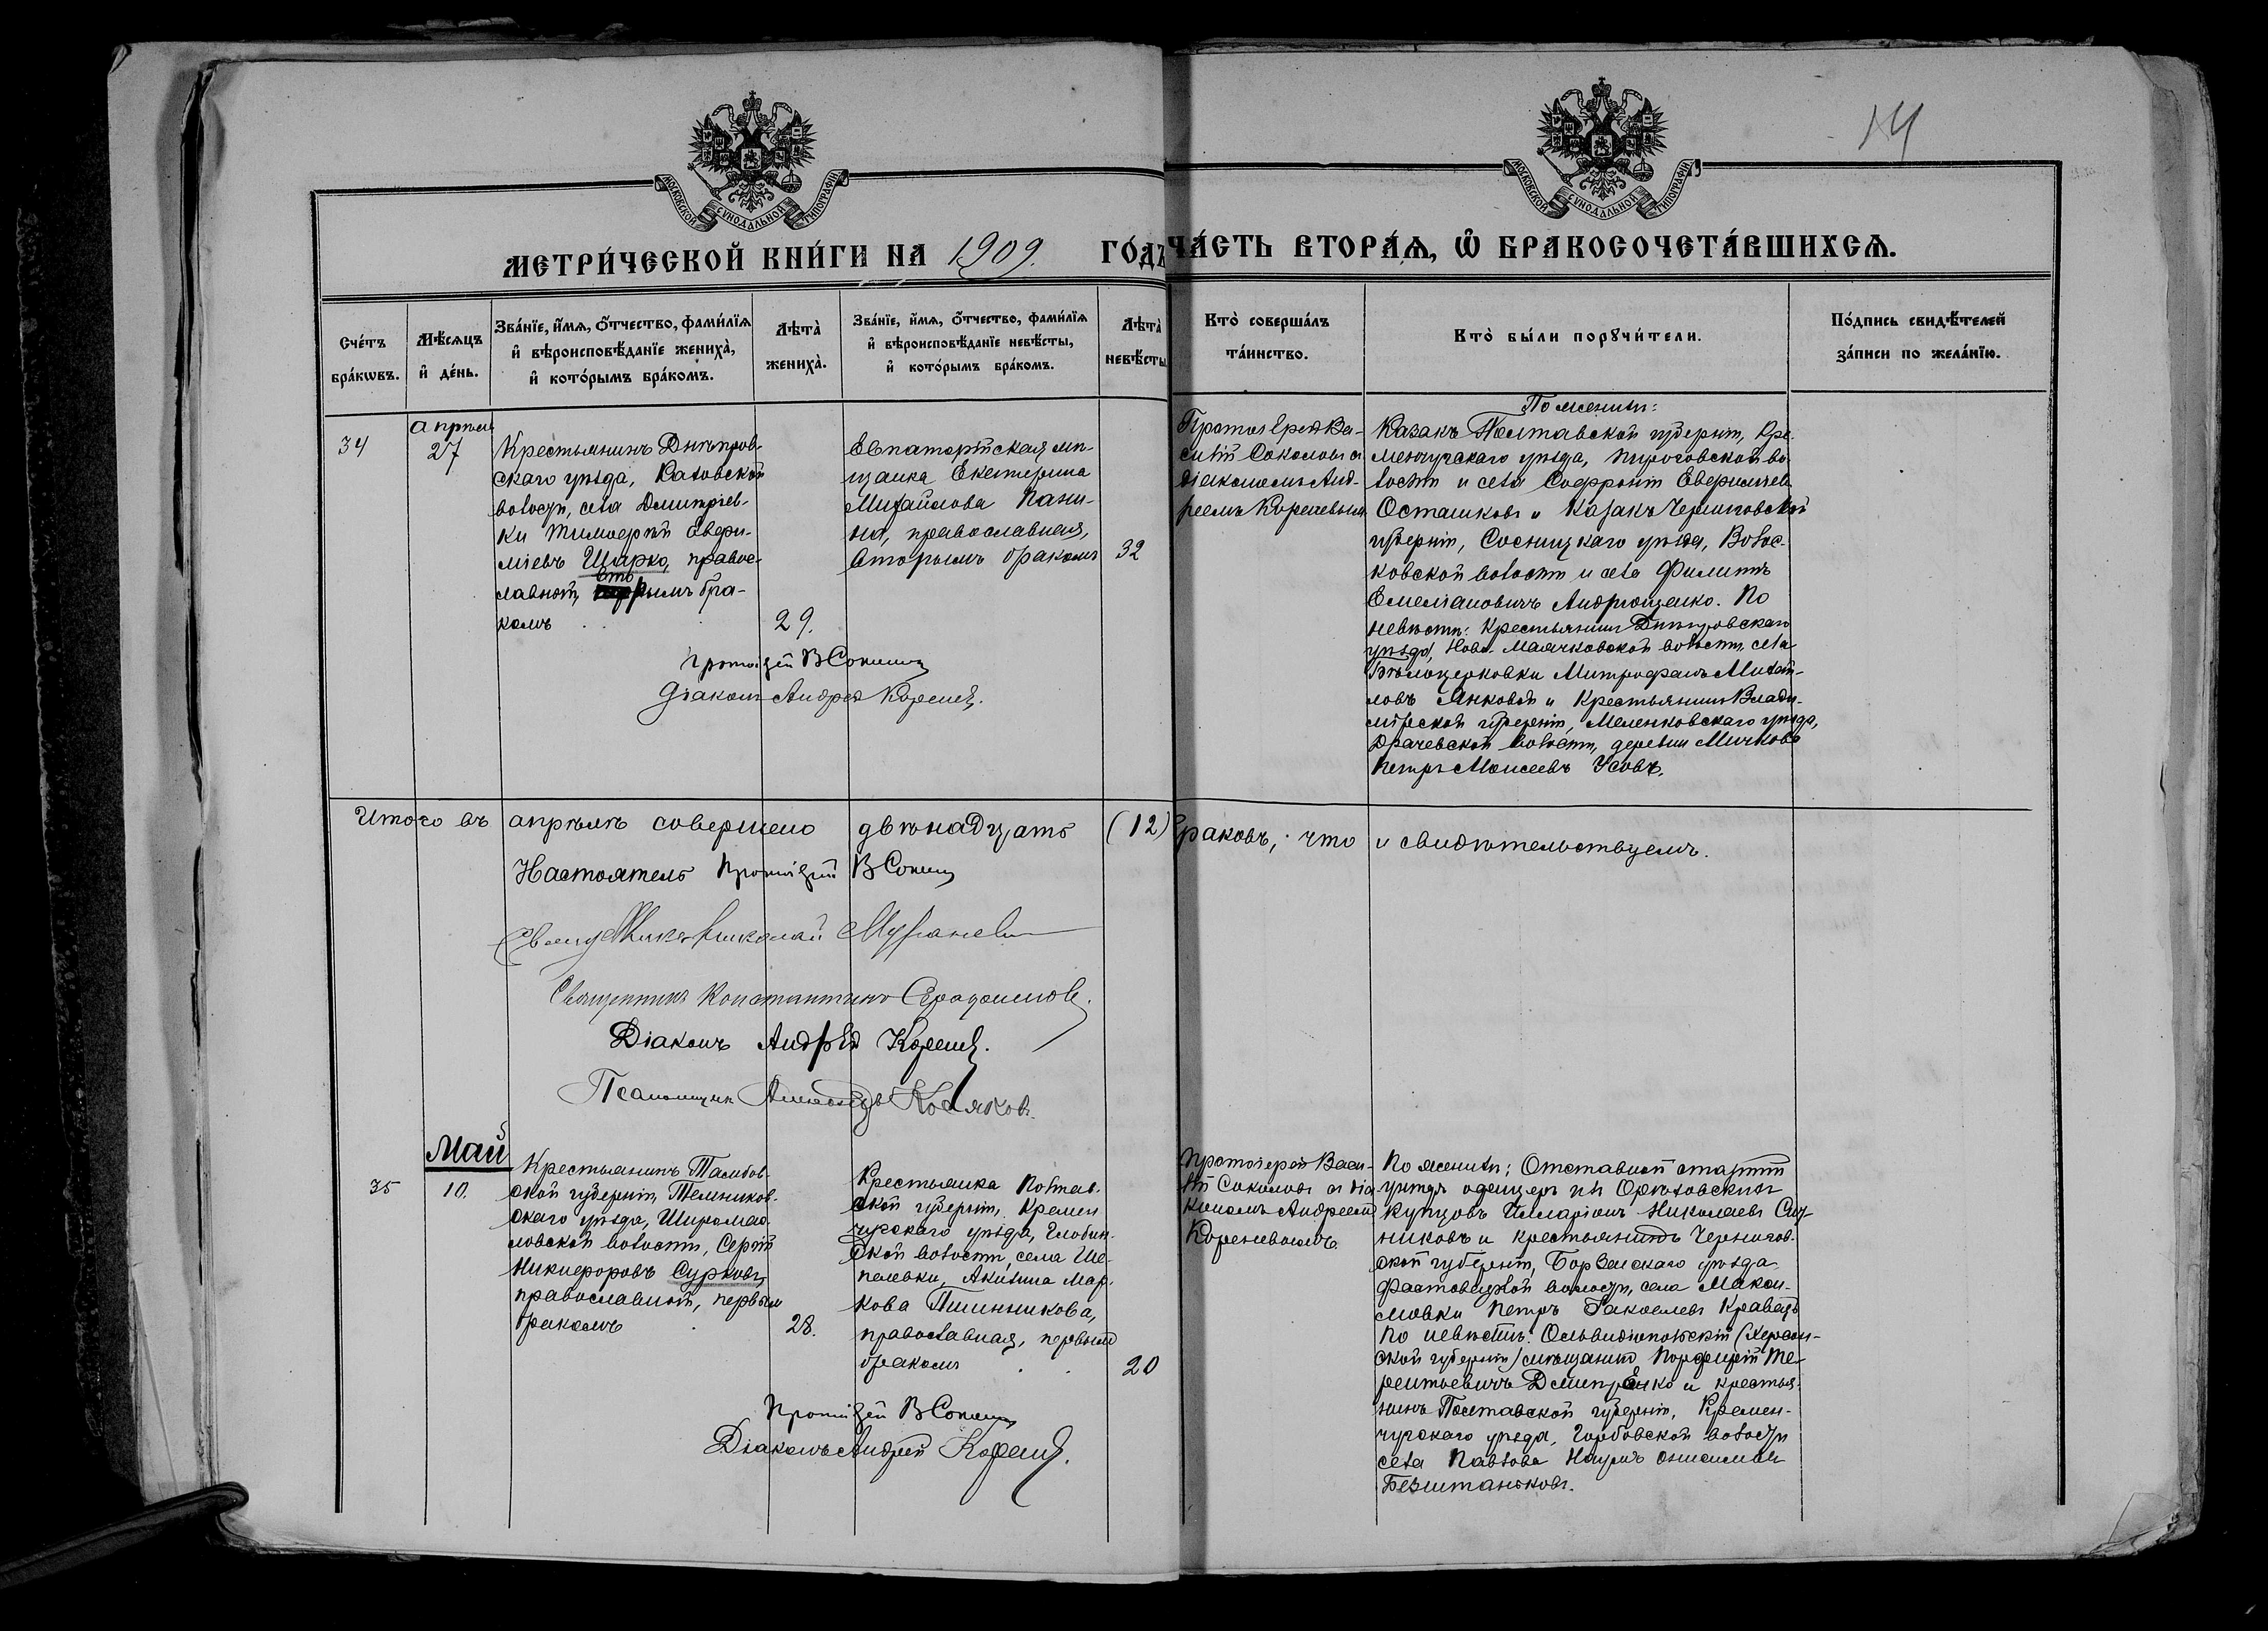 14
МОСКОВСКОЙ СУНОДАЛЬНОЙ ТИПОГРАФІИ
МОСКОВСКОЙ СУНОДАЛЬНОЙ ТИПОГРАФІИ
МЕТРИ́ЧЕСКОЙ КНИ́ГИ НА 1909. ГО́ДЪ
ЧА́СТЬ ВТОРА́Ѧ, Ѽ БРАКОСОЧЕТА́ВШИХСѦ.
Сче́тъ бра́кѡвъ.
Мѣ́сѧцъ и҆ де́нь.
Зва́нїе, и҆́мѧ, ѻ҆́тчество, фами́лїѧ и҆ вѣроисповѣ́данїе жениха̀, и҆ кото́рымъ бра́комъ.
Лѣта̀ жениха̀.
Зва́нїе, и҆́мѧ, ѻ҆́тчество, фами́лїѧ и҆ вѣроисповѣ́данїе невѣ́сты, и҆ кото́рымъ бра́комъ.
Лѣта̀ невѣ́сты
Кто̀ соверша́лъ та́инство.
Кто̀ бы́ли порꙋчи́тели.
По́дпись свидѣ́телей за́писи по жела́нїю.
34
Апрѣль
27
Крестьянинъ Днѣпров-
скаго уѣзда, Каховской
волости, села Дмитріев-
ки Тимофей
міевъ Шарко, правос-
лавный, вторымъ бра-
комъ
29.
Евпаторійская мѣ-
щанка Екатерина
Михайлова Пани-
на, православная,
вторымъ бракомъ
32
Протоіерей Ва-
силій Соколовъ съ
діакономъ Анд-
реемъ Кореневым
По женихѣ:
Казакъ Полтавской губерніи, Кре-
менчугскаго уѣзда, Пироговской во-
лости и села Софроній
Осташковъ и Казакъ Черниговской
губерніи, Сосницкаго уѣзда, Волос-
ковской волости и села Филиппъ
Емеліановичъ Андрющенко. По
невѣстѣ: Крестьянин Днѣпровскаго
уѣзда, Ново Маячковской волости, села
Бѣлоцерковки Митрофанъ Михай-
ловъ Янковой и Крестьянинъ Влади-
мірской губерніи, Меленковскаго уѣзда,
Драчевской волости, деревни Мичково
Петръ Моисеевъ Усовъ.
Протоіерей В Соколовъ
Діаконъ Андрей Кореневъ.
Итого въ апрѣлѣ совершено двѣнадцать (12) браковъ; что и свидѣтельствуемъ.
Настоятель Протоіерей В Соколовъ
Священникъ Николай
Священникъ Константинъ
Діаконъ Андрей Кореневъ.
Псаломщик Косяков.
Май
35
10.
Крестьянинъ Тамбов-
ской губерніи, Темников-
скаго уѣзда, Широмас-
ловской волости, Сергій
Никифоровъ Сурковъ,
православный, первым
бракомъ
28.
Крестьянка Полтав-
ской губерніи, Кремен
чугскаго уѣзда, Глобин-
ской волости, села Ше-
пелевки, Акилина Мар-
кова Пшинникова,
православная, первымъ
бракомъ
20
Протоіерей Васи-
лій Соколовъ съ діа
кономъ Андреемъ
Кореневымъ.
По женихѣ: Отставной старшій
унтеръ офицеръ изъ Орѣховскихъ
Купцовъ Илларіонъ Николаевъ
никовъ и крестьянинъ Чернигов-
ской губерніи, Борзенскаго уѣзда
Фастовецкой волости, села Макси-
мовки Петръ Іаковлевъ Кравецъ
По невѣстѣ: Ольвидіопольскій (Херсон-
ской губерніи) мѣщанинъ Порфирій Те-
рентьевичъ Дмитренко и крестья-
нинъ Полтавской губерніи, Кремен-
чугскаго уѣзда, Горбовской волости
села Павлова Наумъ
Безштаньковъ.
Протоіерей В Соколовъ
Діаконъ Андрей Кореневъ.